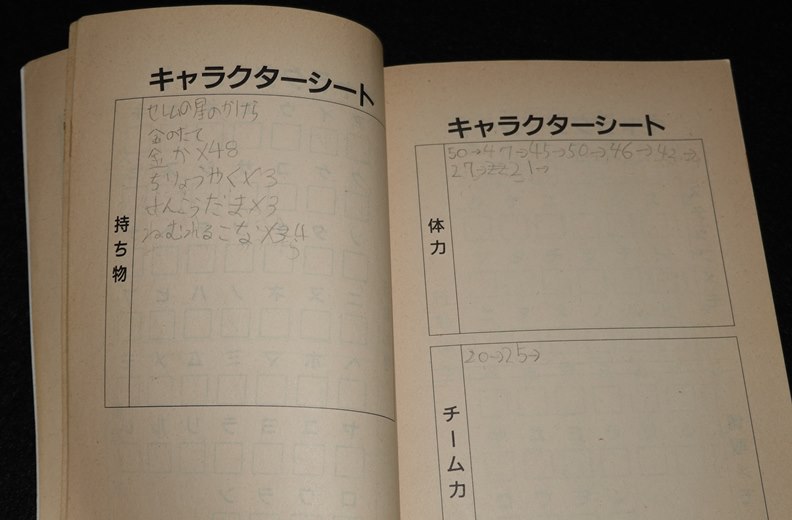 キャラクターシート
持ち物
セレムの星のかけら
金のたて
金か×48
ちりょうやく×3
せんこうだま×3
ねむれるこな×4
キャラクターシート
体力
50→47→45→50→46→42→
27→22 21→
チーム力
20→25→